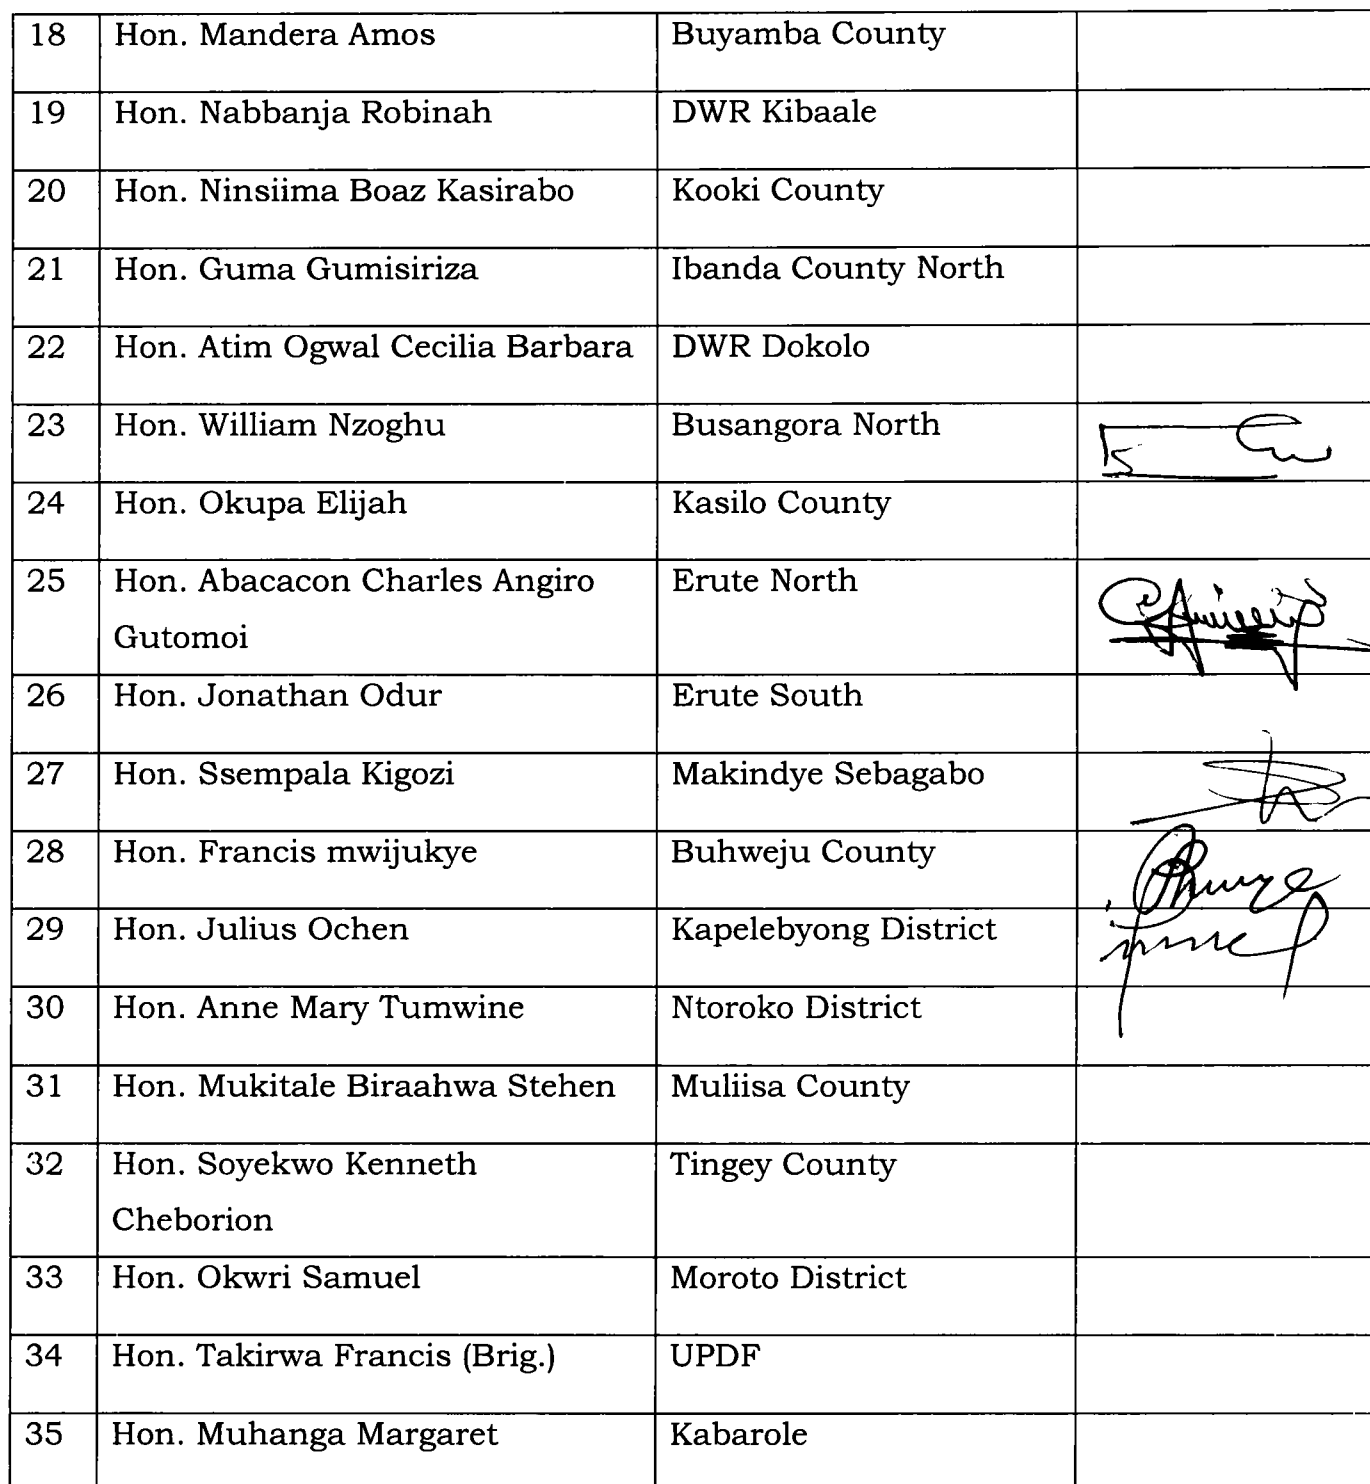 18 Hon. Mandera Amos Buyamba County
19 Hon. Nabbanja Robinah DWR Kibaale
20 Hon. Ninsiima Boaz Kasirabo Kooki County
21 Hon. Guma Gumisiriza Ibanda County North
22 Hon. Atim Ogwal Cecilia Barbara DWR Dokolo
23 Hon. William Nzoghu Busangora North
24 Hon. Okupa Elijah Kasilo County
25 Hon. Abacacon Charles Angiro Erute North
Gutomoi
26 Hon. Jonathan Odur Erute South
27 Hon. Ssempala Kigozi Makindye Sebagabo
28 Hon. Francis mwijukye Buhweju County
29 Hon. Julius Ochen Kapelebyong District
30 Hon. Anne Mary Tumwine Ntoroko District
31 Hon. Mukitale Biraahwa Stehen Muliisa County
32 Hon. Soyekwo Kenneth Tingey County
Cheborion
33 Hon. Okwri Samuel Moroto District
34 Hon. Takirwa Francis (Brig.) UPDF
35 Hon. Muhanga Margaret Kabarole